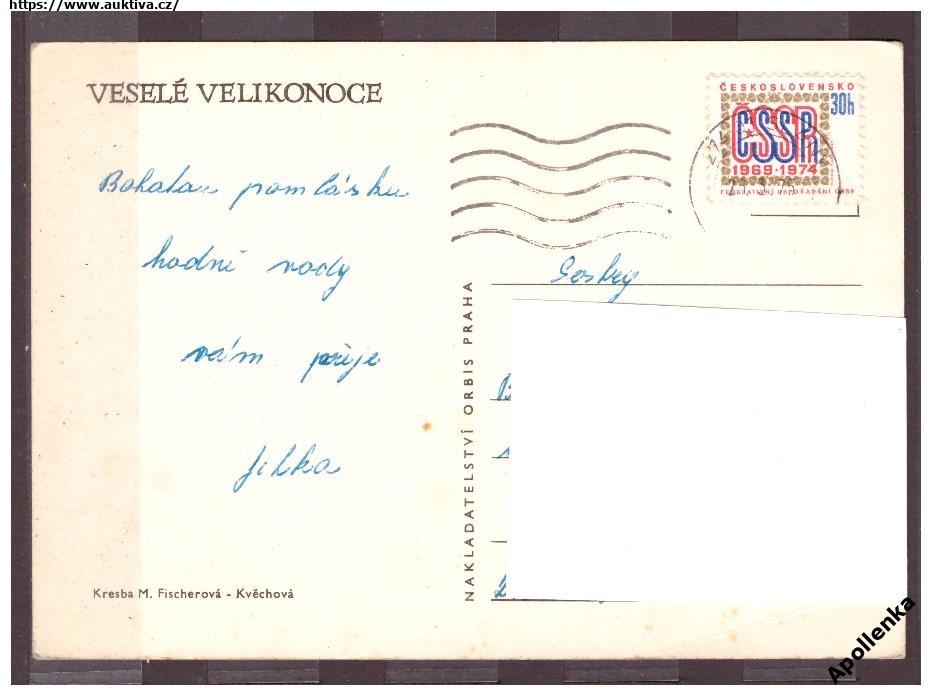 https://www.auktiva.cz/
VESELÉ VELIKONOCE
ČESKOSLOVENSKO
30h
ČSSR
1969·1974
FEDERATIVNÍ USPOŘÁDÁNÍ ČSSR
Bohatou pomlásku
hodně vody
vám přeje
Jitka
Sestry
NAKLADATELSTVÍ ORBIS PRAHA
Kresba M. Fischerová - Kvěchová
Apollenka